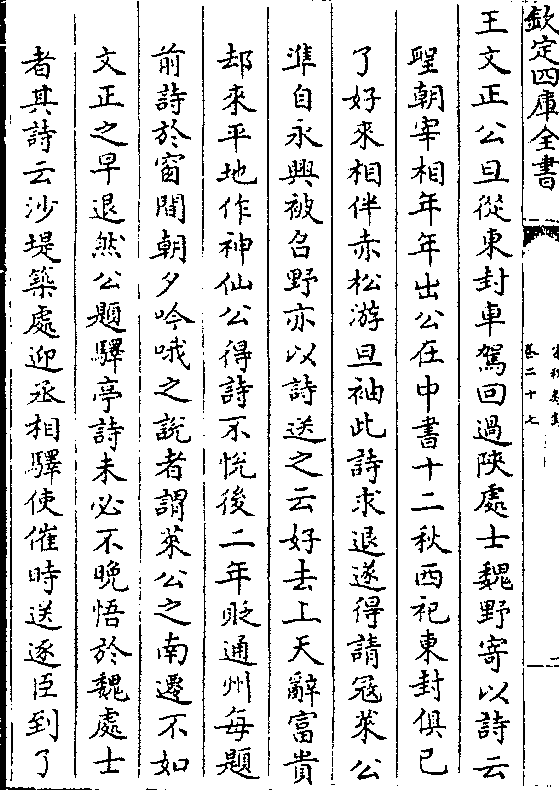 欽定四庫全書
卷二十七
王文正公旦從東封車駕回過陝處士魏野寄以詩云
聖朝宰相年年出公在中書十二秋西祀東封俱已
了好來相伴赤松游旦袖此詩求退遂得請冦萊公
凖自永興被召野亦以詩送之云好去上天辭富貴
却來平地作神仙公得詩不悅後二年貶通州每題
前詩於窗間朝夕吟哦之說者謂萊公之南遷不如
文正之早退然公題驛亭詩未必不晩悟於魏處士
者其詩云沙堤築處迎丞相驛使催時送逐臣到了